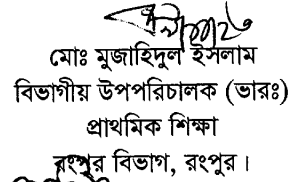 মোঃ মুজাহিদুল ইসলাম
বিভাগীয় উপপরিচালক (ভারঃ)
প্রাথমিক শিক্ষা
রংপুর বিভাগ, রংপুর।